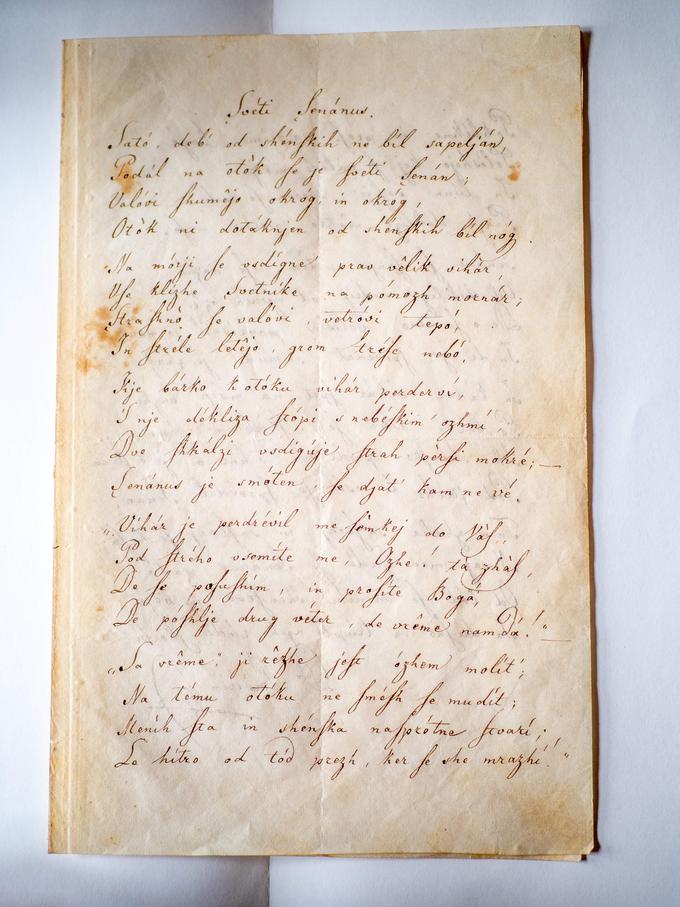 Svéti Senánus.
Sató, deb' od shénſkih ne bil sapelján,
Podál na otòk ſe je ſvéti Senán;
Valóvi ſhumêjo okróg in okróg,
Otòk ni dotáknjen od shénſkih bil nóg.
Na mórji ſe vsdígne prav vêlik vihár,
Vſe klízhe Svetníke na pómozh mornár;
Straſhnò ſe valóvi, vetróvi tepó,
In ſtréle letêjo, grom tréſe nebó.
Kje bárko k otóku vihár perderví,
'S nje dékliza ſtópi s nebéſkim' ozhmí,
Dve ſhkalzi vsdigúje ſtrah pèrſi mokré; —
Senánus je smóten, ſe dját' kam ne vé.
„Vihár je perdrévil me ſêmkej do Váſ,
Pod ſtrého vsemíte me, Ozhe! ta zháſ,
De ſe poſuſhím, in proſíte Bogá,
De póſhlje drug véter, de vrême nam dá!" —
„Sa vrême", ji rêzhe jeſt ózhem molít';
Na tému otóku ne ſméſh ſe mudít;
Meníh ſta in shénſka naſprótne ſtvarí;
Le hitro od tód prezh, ker ſe she mrazhí!"